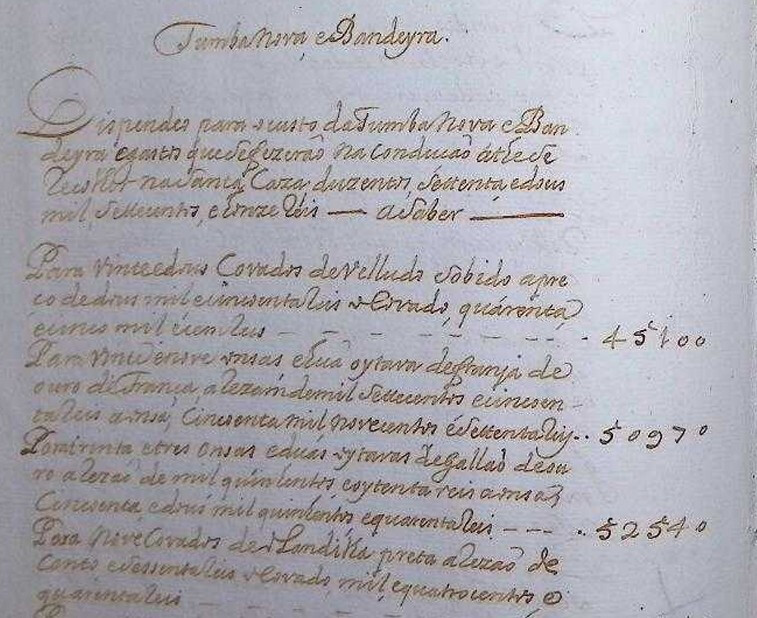 Tumba Nova e Bandeyra.
Dispendeo para o custo da Tumba Nova e Ban
deyra e gastos que se fizeraõ na conducaõ athe se
na Santa Caza, duzentos, settenta e dous
mil, settecentos, e onze Reis — a Saber —
Para vinte e dous Covados de Velludo sobido a pre
co de dous mil e cincoenta reis o Covado, quarenta
e cinco mil e cem reis - - - - - - 45100
Para vinte e nove onsas e huã oytava de franja de
ouro de França, a rezam de mil settecentos e cincoen-
ta reis a onsa, cincoenta mil novecentos e settenta reis.. 50970
Por trinta e tres onsas e duas oytavas de gallaõ de ou
ro a rezaõ de mil quinhentos e oytenta reis a onsa
Cincoenta e dous mil quinhentos e quarenta reis - - - .. 52540
Para Nove Covados de Olandilha preta a rezaõ de
cento e sessenta reis o Covado, mil, e quatrocentos e
quarenta reis - - - - - -